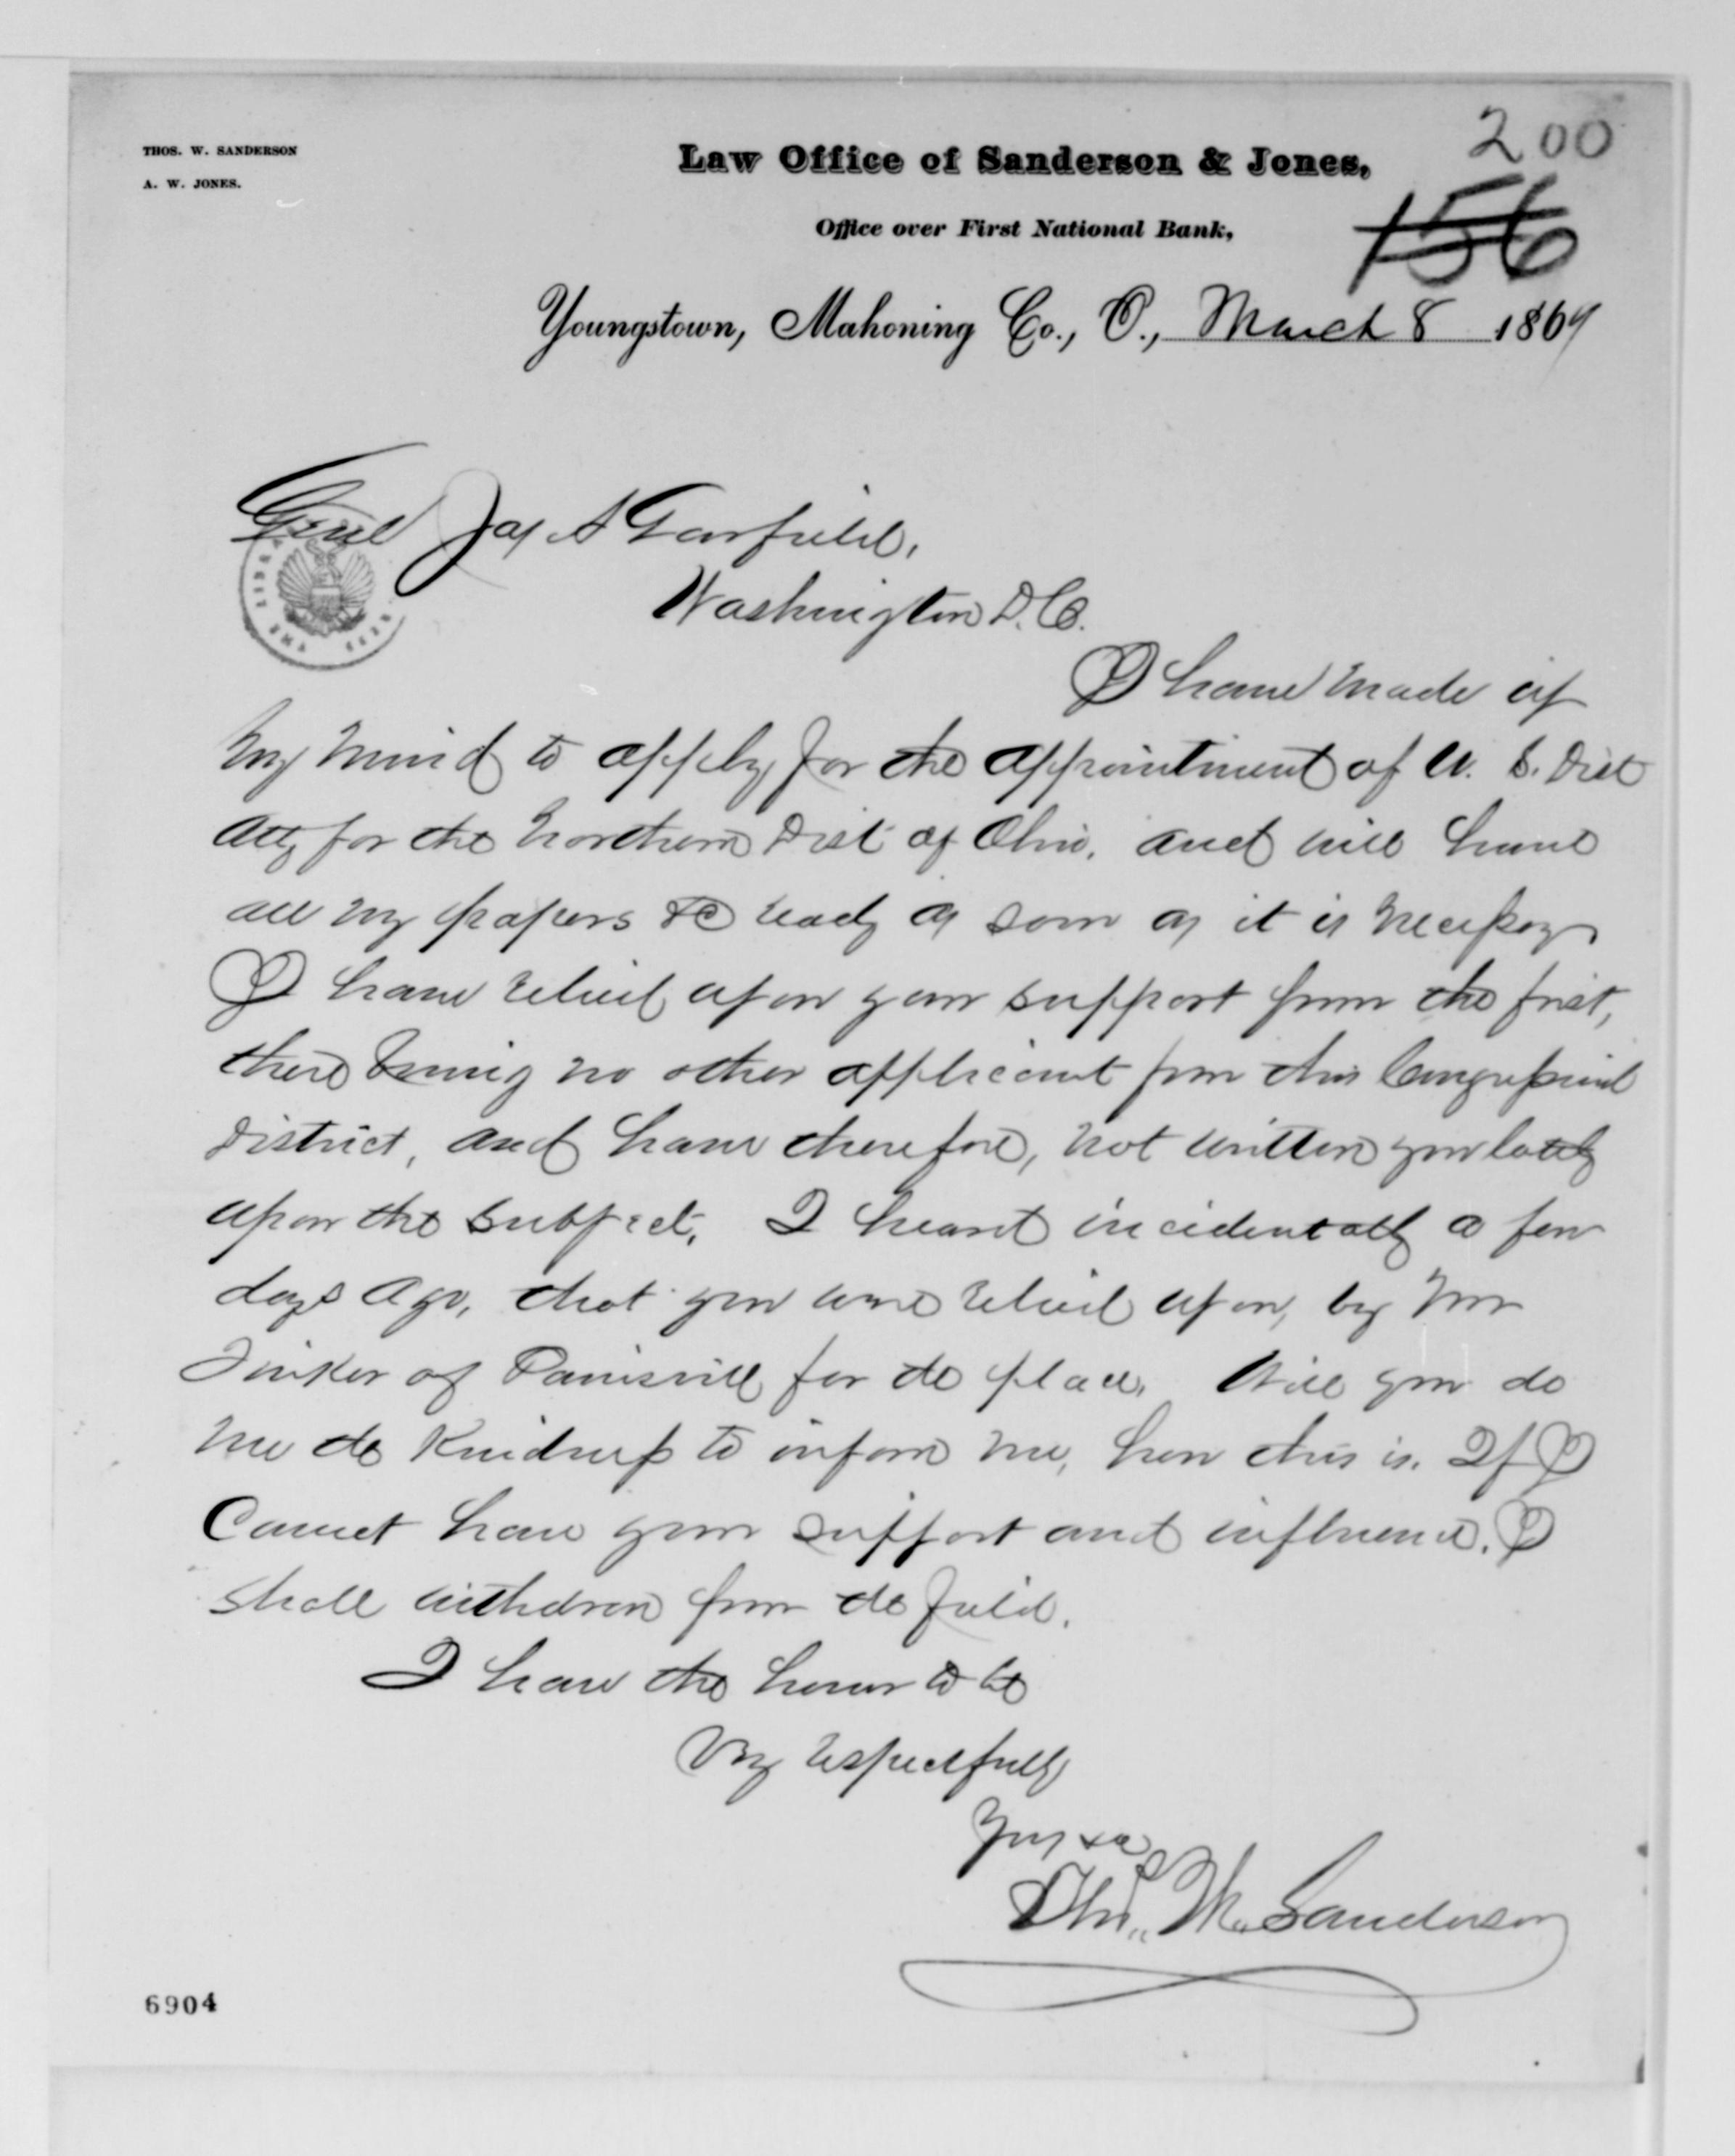 THOS. W. SANDERSON
A. W. JONES.
Law Office of Sanderson & Jones,
200
Office over First National Bank,
156
Youngstown, Mahoning Co., O., March 8 1869
Genl Jas A Garfield,
Washington D.C.
I have made up
my mind to apply for the appointment of U. S. Dist
Atty for the Northern Dist of Ohio. and will have
all my papers &c ready as soon as it is necessary
I have relied upon your support from the first,
there being no other applicant from this Congressional
District, and have therefore, not written you lately
upon the subject. I heard incidentally a few
days ago, that you were relied upon, by Mr
Tinker of Painsvill for the place. Will you do
me the kindness to inform me, how this is. If I
Cannot have your support and influence. I
shall withdraw from the field.
I have the honor to be
Very respectfully
Yours &c
Thos. W. Sanderson
6904